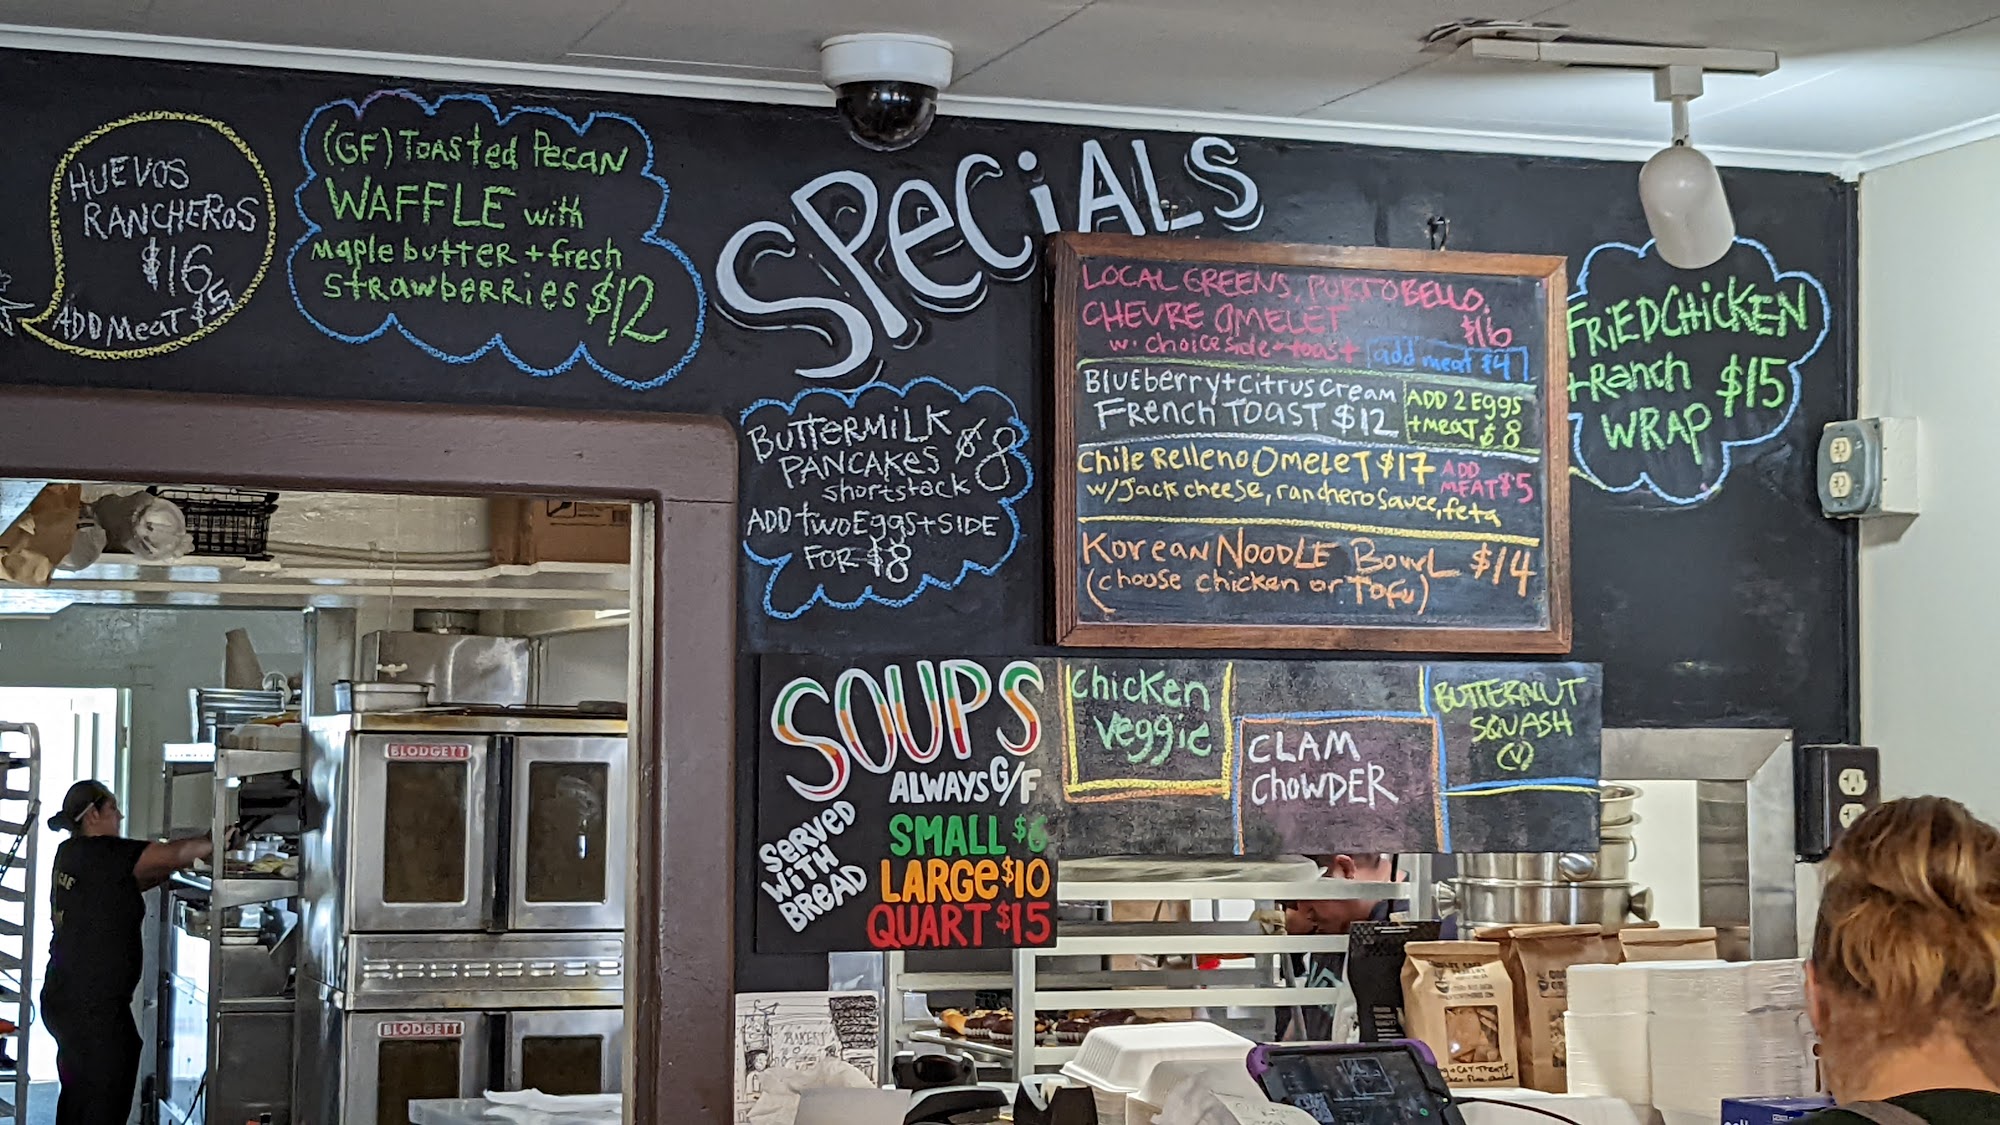 HUEVOS
RANCHEROS
$16
ADD MEAT $5
(GF) TOASTED PECAN
WAFFLE with
Maple butter + fresh
STRAWBERRIES $12
SPECiALS
BUTTERMILK
PANCAKES $8
shortstack
ADD two Eggs + SIDE
FOR $8
LOCAL GREENS, PORTOBELLO,
CHEVRE OMELET $16
w. choice side + toast
add meat $4
Blueberry + Citrus Cream
French TOAST $12
ADD 2 Eggs
+ MEAT $8
Chile Relleno OMELET $17
ADD
MEAT $5
w/ Jack cheese, ranchero sauce, feta
Korean NOODLE BOWL $14
(choose chicken or Tofu)
FRiED CHiCKEN
+ Ranch $15
WRAP
SOUPS
ALWAYS G/F
SERVED
WITH
BREAD
SMALL $6
LARGE $10
QUART $15
Chicken
veggie
CLAM
CHOWDER
BUTTERNUT
SQUASH
(V)
BLODGETT
BLODGETT
BAKERY